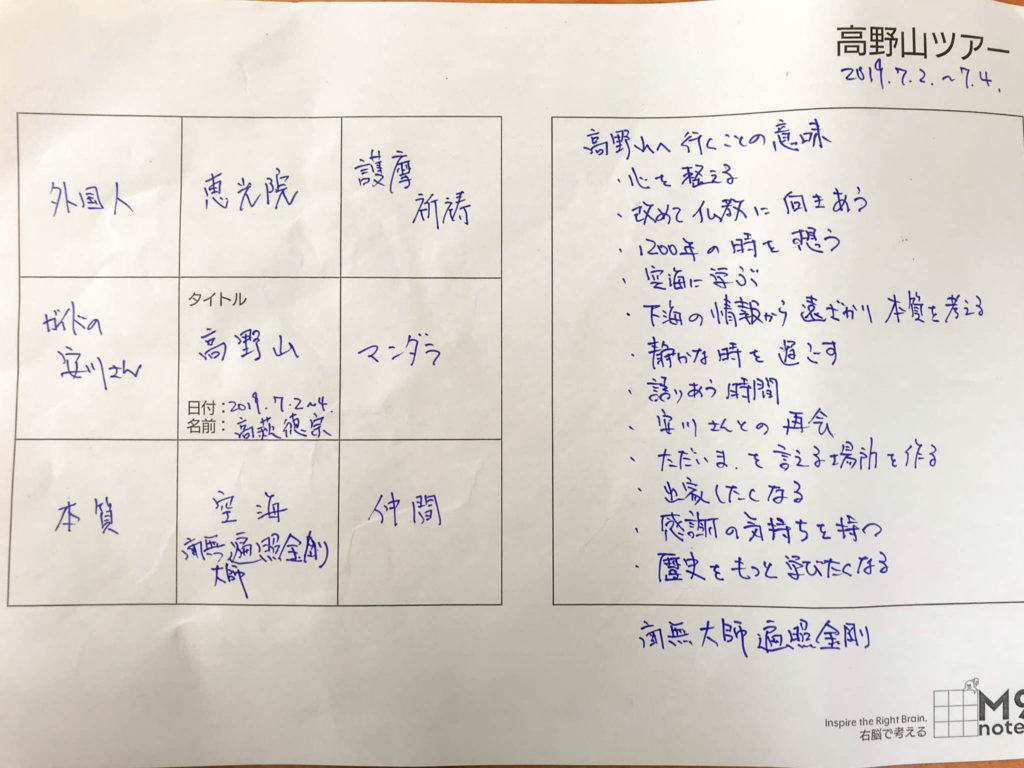 高野山ツアー
2019.7.2.~7.4.
外国人
恵光院
護摩
祈祷
ガイドの
安川さん
タイトル
高野山
日付:2019.7.2~4.
名前:高萩徳宗
マンダラ
本質
空海
南無遍照金剛
大師
仲間
高野山へ行くことの意味
・心を整える
・改めて仏教に向きあう
・1200年の時を想う
・空海に学ぶ
・下海の情報から遠ざかり本質を考える
・静かな時を過ごす
・語りあう時間
・安川さんとの再会
・ただいま.を言える場所を作る
・出家したくなる
・感謝の気持ちを持つ
・歴史をもっと学びたくなる
南無大師遍照金剛
Inspire the Right Brain.
右脳で考える
M9
note